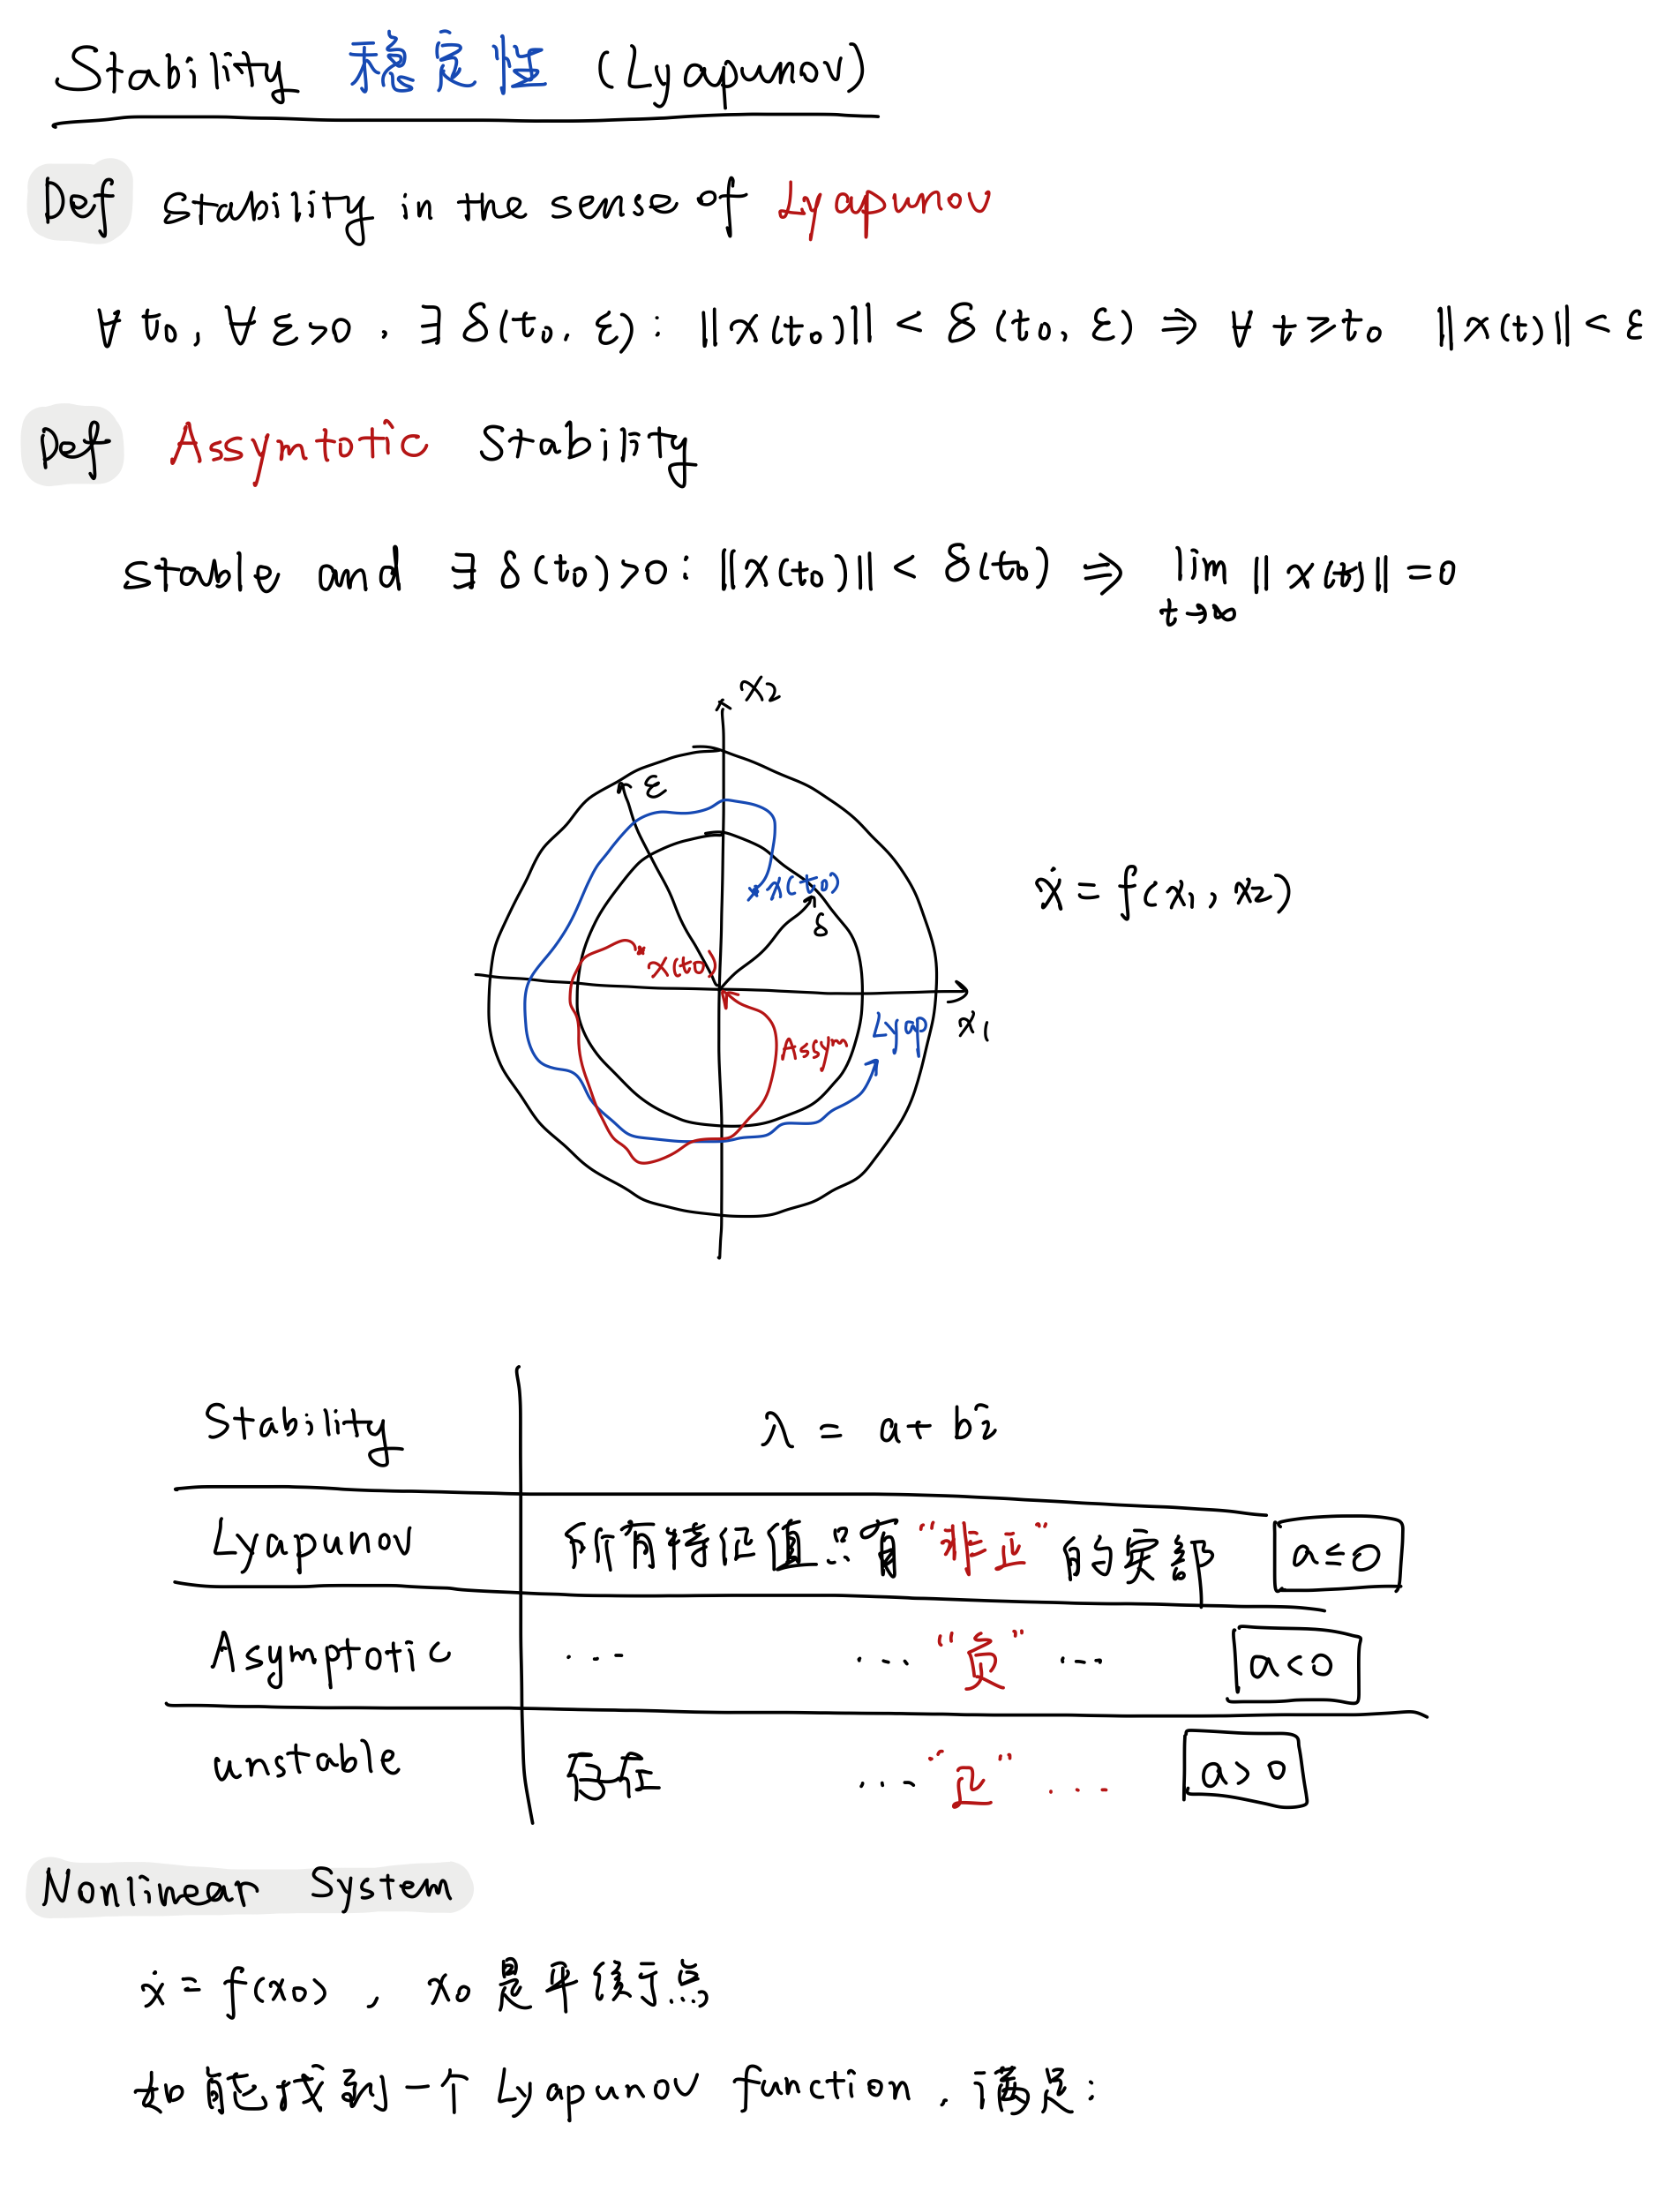 Stability 稳定性 (Lyapunov)
Def stability in the sense of Lyapunov
∀ t₀, ∀ ε>0, ∃ δ(t₀, ε): ||x(t₀)|| < δ(t₀, ε) ⇒ ∀ t≥t₀ ||x(t)|| < ε
Def Assymtotic Stability
stable and ∃ δ(t₀)>0: ||x(t₀)|| < δ(t₀) ⇒ lim t→∞ ||x(t)|| = 0
x₂
ε
x(t₀)
δ
ẋ = f(x₁, x₂)
x(t₀)
x₁
Lyap
Assym
Stability λ = a + bi
Lyapunov 所有特征值只有 "非正" 的实部 a≤0
Asymptotic ... ... "负" ... a<0
unstable 存在 ... "正" ... a>0
Nonlinear System
ẋ = f(x₀), x₀ 是平衡点
如能找到一个 Lyapunov function, 满足: